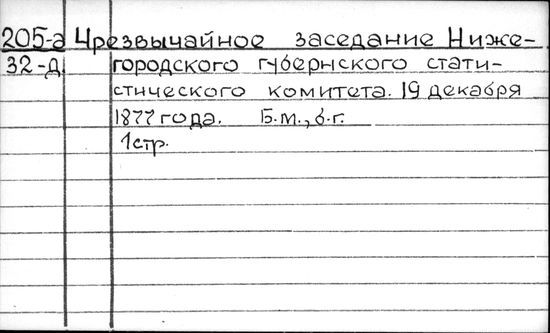 205-а Чрезвычайное заседание Ниже-
32-д. городского губернского стати-
стического комитета. 19 декабря
1877 года. Б.м., б.г.
1 стр.